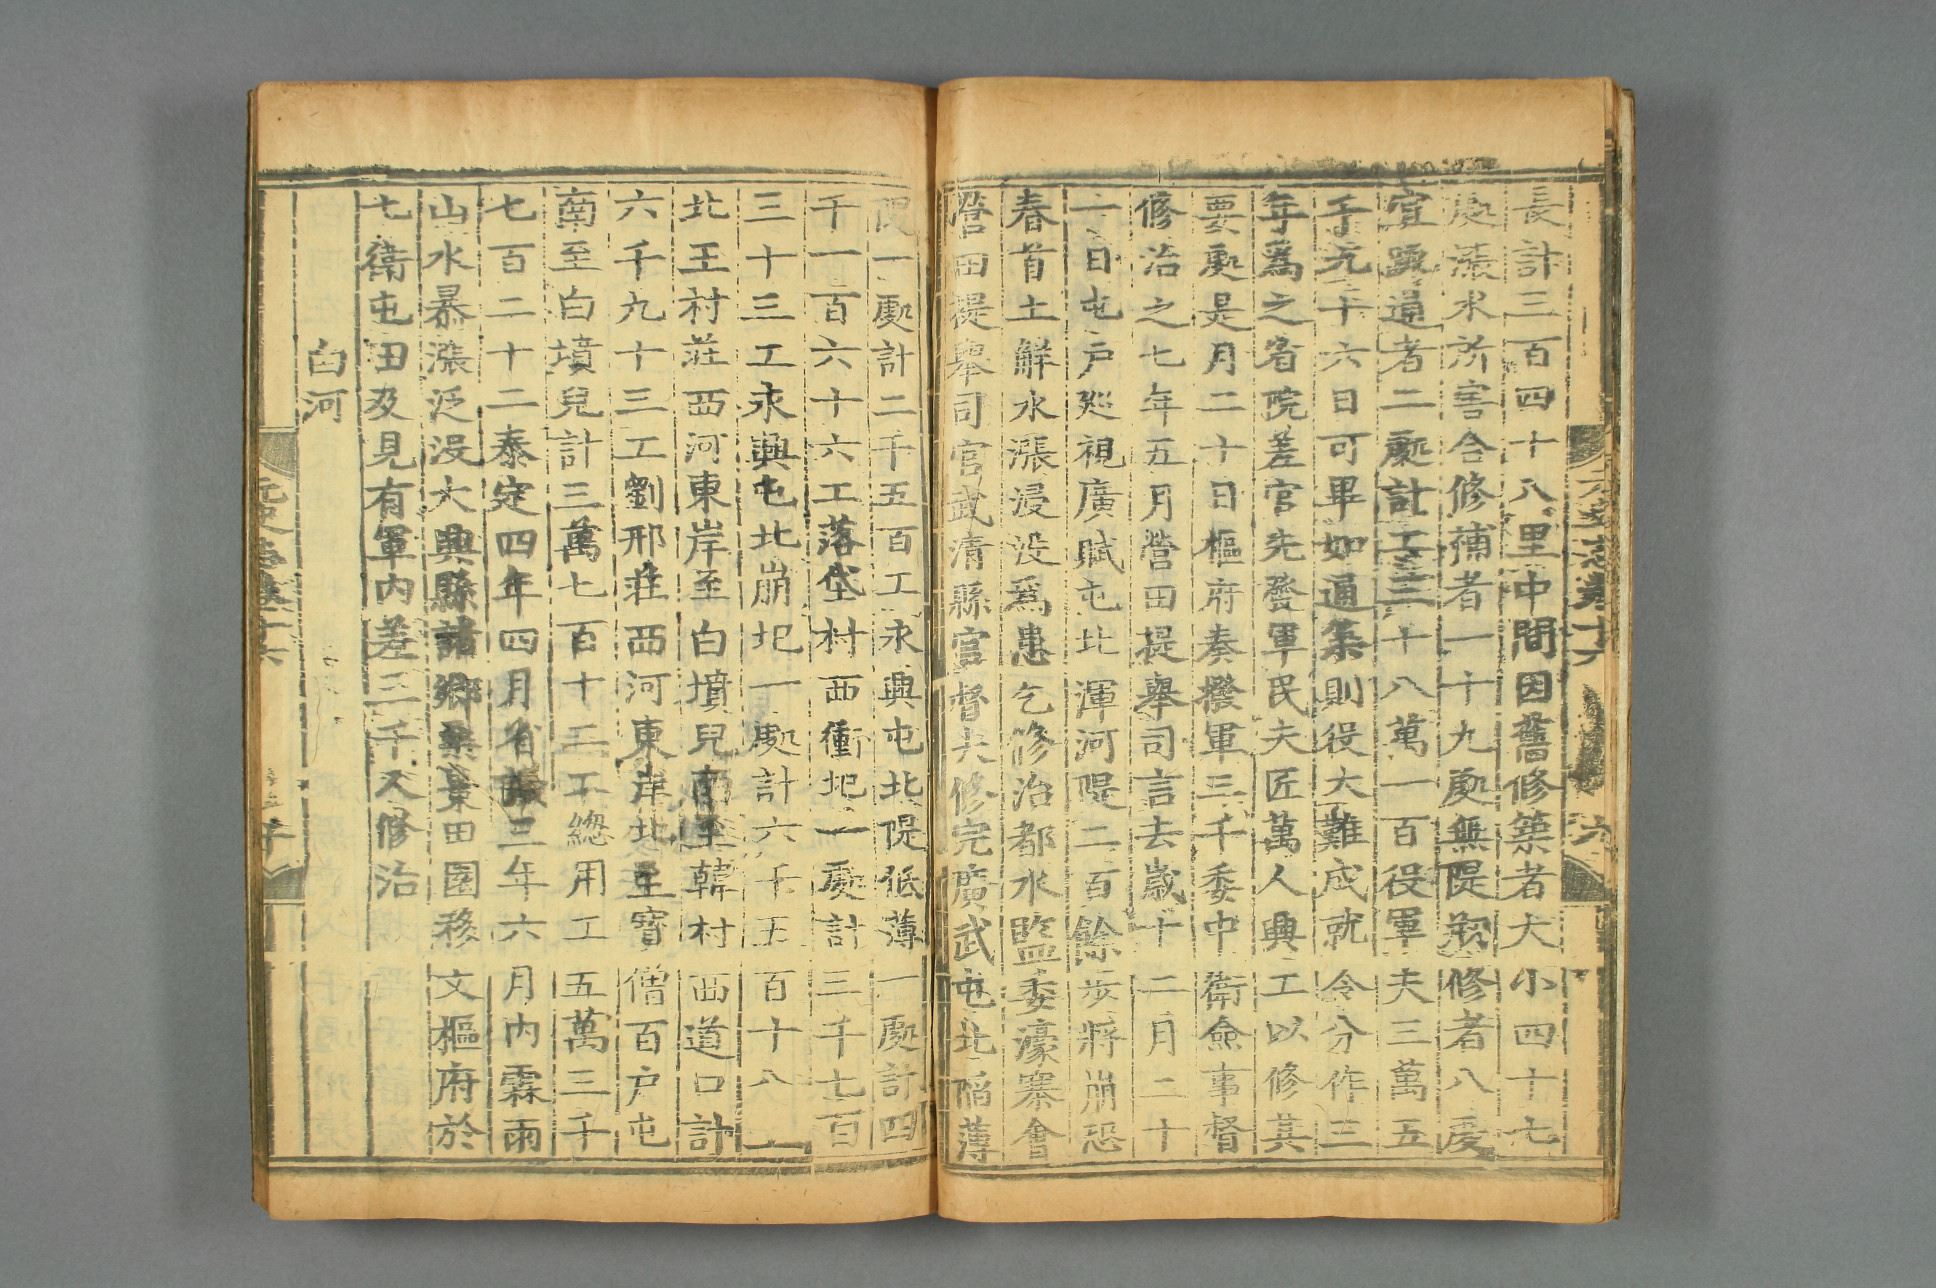 長計三百四十八里中間因舊修築者大小四十七
處漲水所害合修補者一十九處無隄創修者八處
宜踈通者二處計工三十八萬一百役軍夫三萬五
千九十六日可畢如通築則役大難成就令分作三
年爲之省院差官先發軍民夫匠萬人興工以修其
要處是月二十日樞府奏撥軍三千委中衛僉事督
修治之七年五月營田提舉司言去歲十二月二十
一日屯戶廵視廣賦屯北渾河隄二百餘步將崩恐
春首土解水漲浸没爲患乞修治都水監委濠寨會
營田提舉司官武清縣官督夫修完廣武屯北陷薄
隄一處計二千五百工永興屯北隄低薄一處計四
千一百六十六工落垡村西衝圯一處計三千七百
三十三工永興屯北崩圯一處計六千五百十八工
北王村莊西河東岸至白墳兒南至韓村西道口計
六千九十三工劉邢莊西河東岸北至寳僧百戶屯
南至白墳兒計三萬七百十二工總用工五萬三千
七百二十二泰定四年四月省議三年六月内霖雨
山水暴漲泛没大興縣諸鄉桑棗田園移文樞府於
七衛屯田及見有軍内差三千人修治
白河